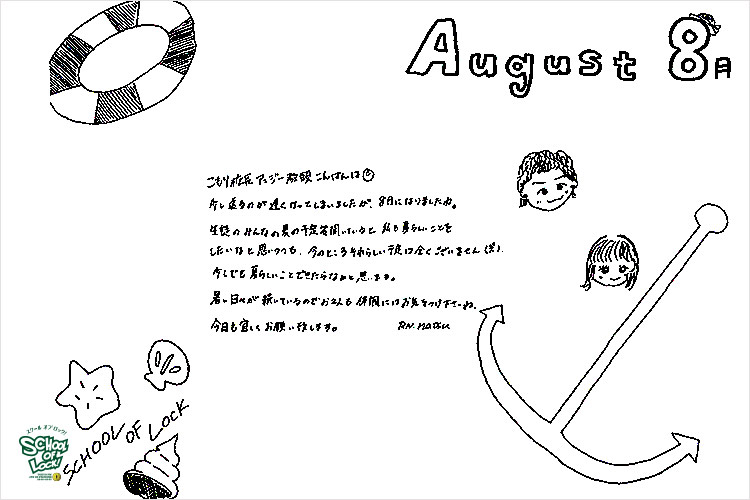 August 8月
こもり校長 アンジー教頭 こんばんは
少し送るのが遅くなってしまいましたが、8月になりましたね。
生徒のみんなの夏の予定等聞いていると 私も夏らしいことを
したいなと思いつつも、今のところそれらしい予定は全くございません(笑).
少しでも夏らしいことできたらなぁと思います。
暑い日々が続いているのでお二人も体調にはお気をつけ下さいね.
今日も宜しくお願い致します。 RN. natsu
SCHOOL OF LOCK
スクール オブ ロック!
SCHOOL
OF
LOCK!